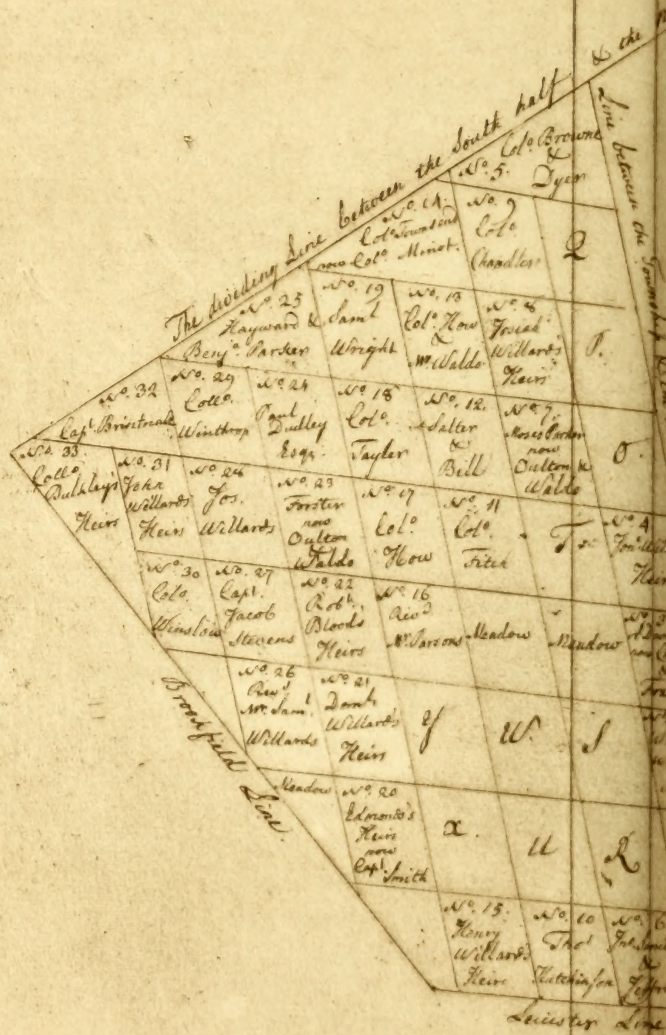 The dividing Line between the South half & the
Line between the Township
Colo. Browne
&
No. 5. Dyer
No. 14.
Colo. Townsend
now Colo. Minot.
No. 9
Colo.
Chandler
Q
No. 25
Hayward &
Benja. Parker
No. 19
Saml.
Wright
No. 13
Colo. How
&
Mr. Waldo
No. 8
Josiah
Willard's
Heirs
P.
No. 32
Capt.
No. 29
Collo.
Winthrop
No. 24
Paul
Dudley
Esqr.
No. 18
Colo.
Tayler
No. 12.
Salter
&
Bill
No. 7.
Moses Parker
now
Oulton &
Waldo
O.
No. 33.
Collo.
Bulkley's
Heirs
No. 31
John
Willards
Heirs
No. 28
Jos.
Willards
No. 23
Forster
now
Oulton
Waldo
No. 17
Colo.
How
No. 11
Colo.
Fitch
T
No. 4
No. 30
Colo.
Winslow
No. 27
Capt.
Jacob
Stevens
No. 22
Robt.
Bloods
Heirs
No. 16
Revd.
Mr. Parsons
Meadow
Meadow
No. 26
Revd.
Mr. Saml.
Willards
No. 21
Willard's
Heirs
Y
W.
S
Brookfield Line.
Meadow
No. 20
Edmonds's
Heirs
now
Capt. Smith
X.
U
R
No. 15.
Henry
Willard's
Heirs
No. 10
Thos.
Hutchinson
No. 6
Leicester Line